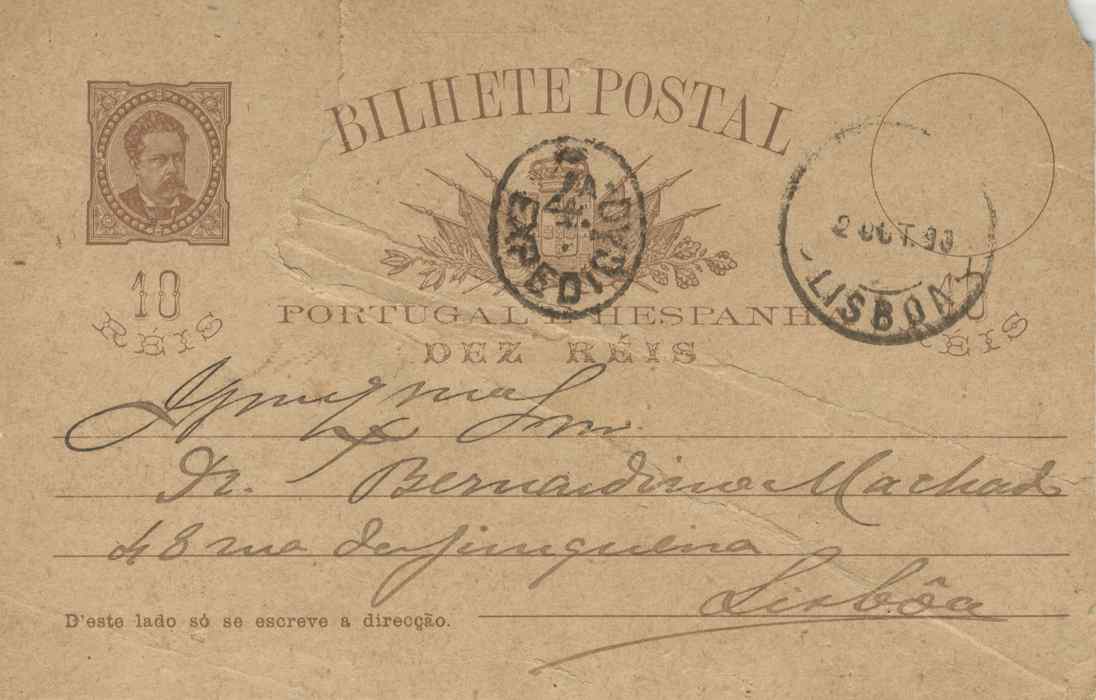 BILHETE POSTAL
EXPEDIÇÃO
2 OUT. 93
LISBOA
10 RÉIS
PORTUGAL E HESPANHA
10 RÉIS
DEZ RÉIS
Snr.
Dr. Bernardino Machado
48 rua da Junqueira
Lisbôa
D'este lado só se escreve a direcção.